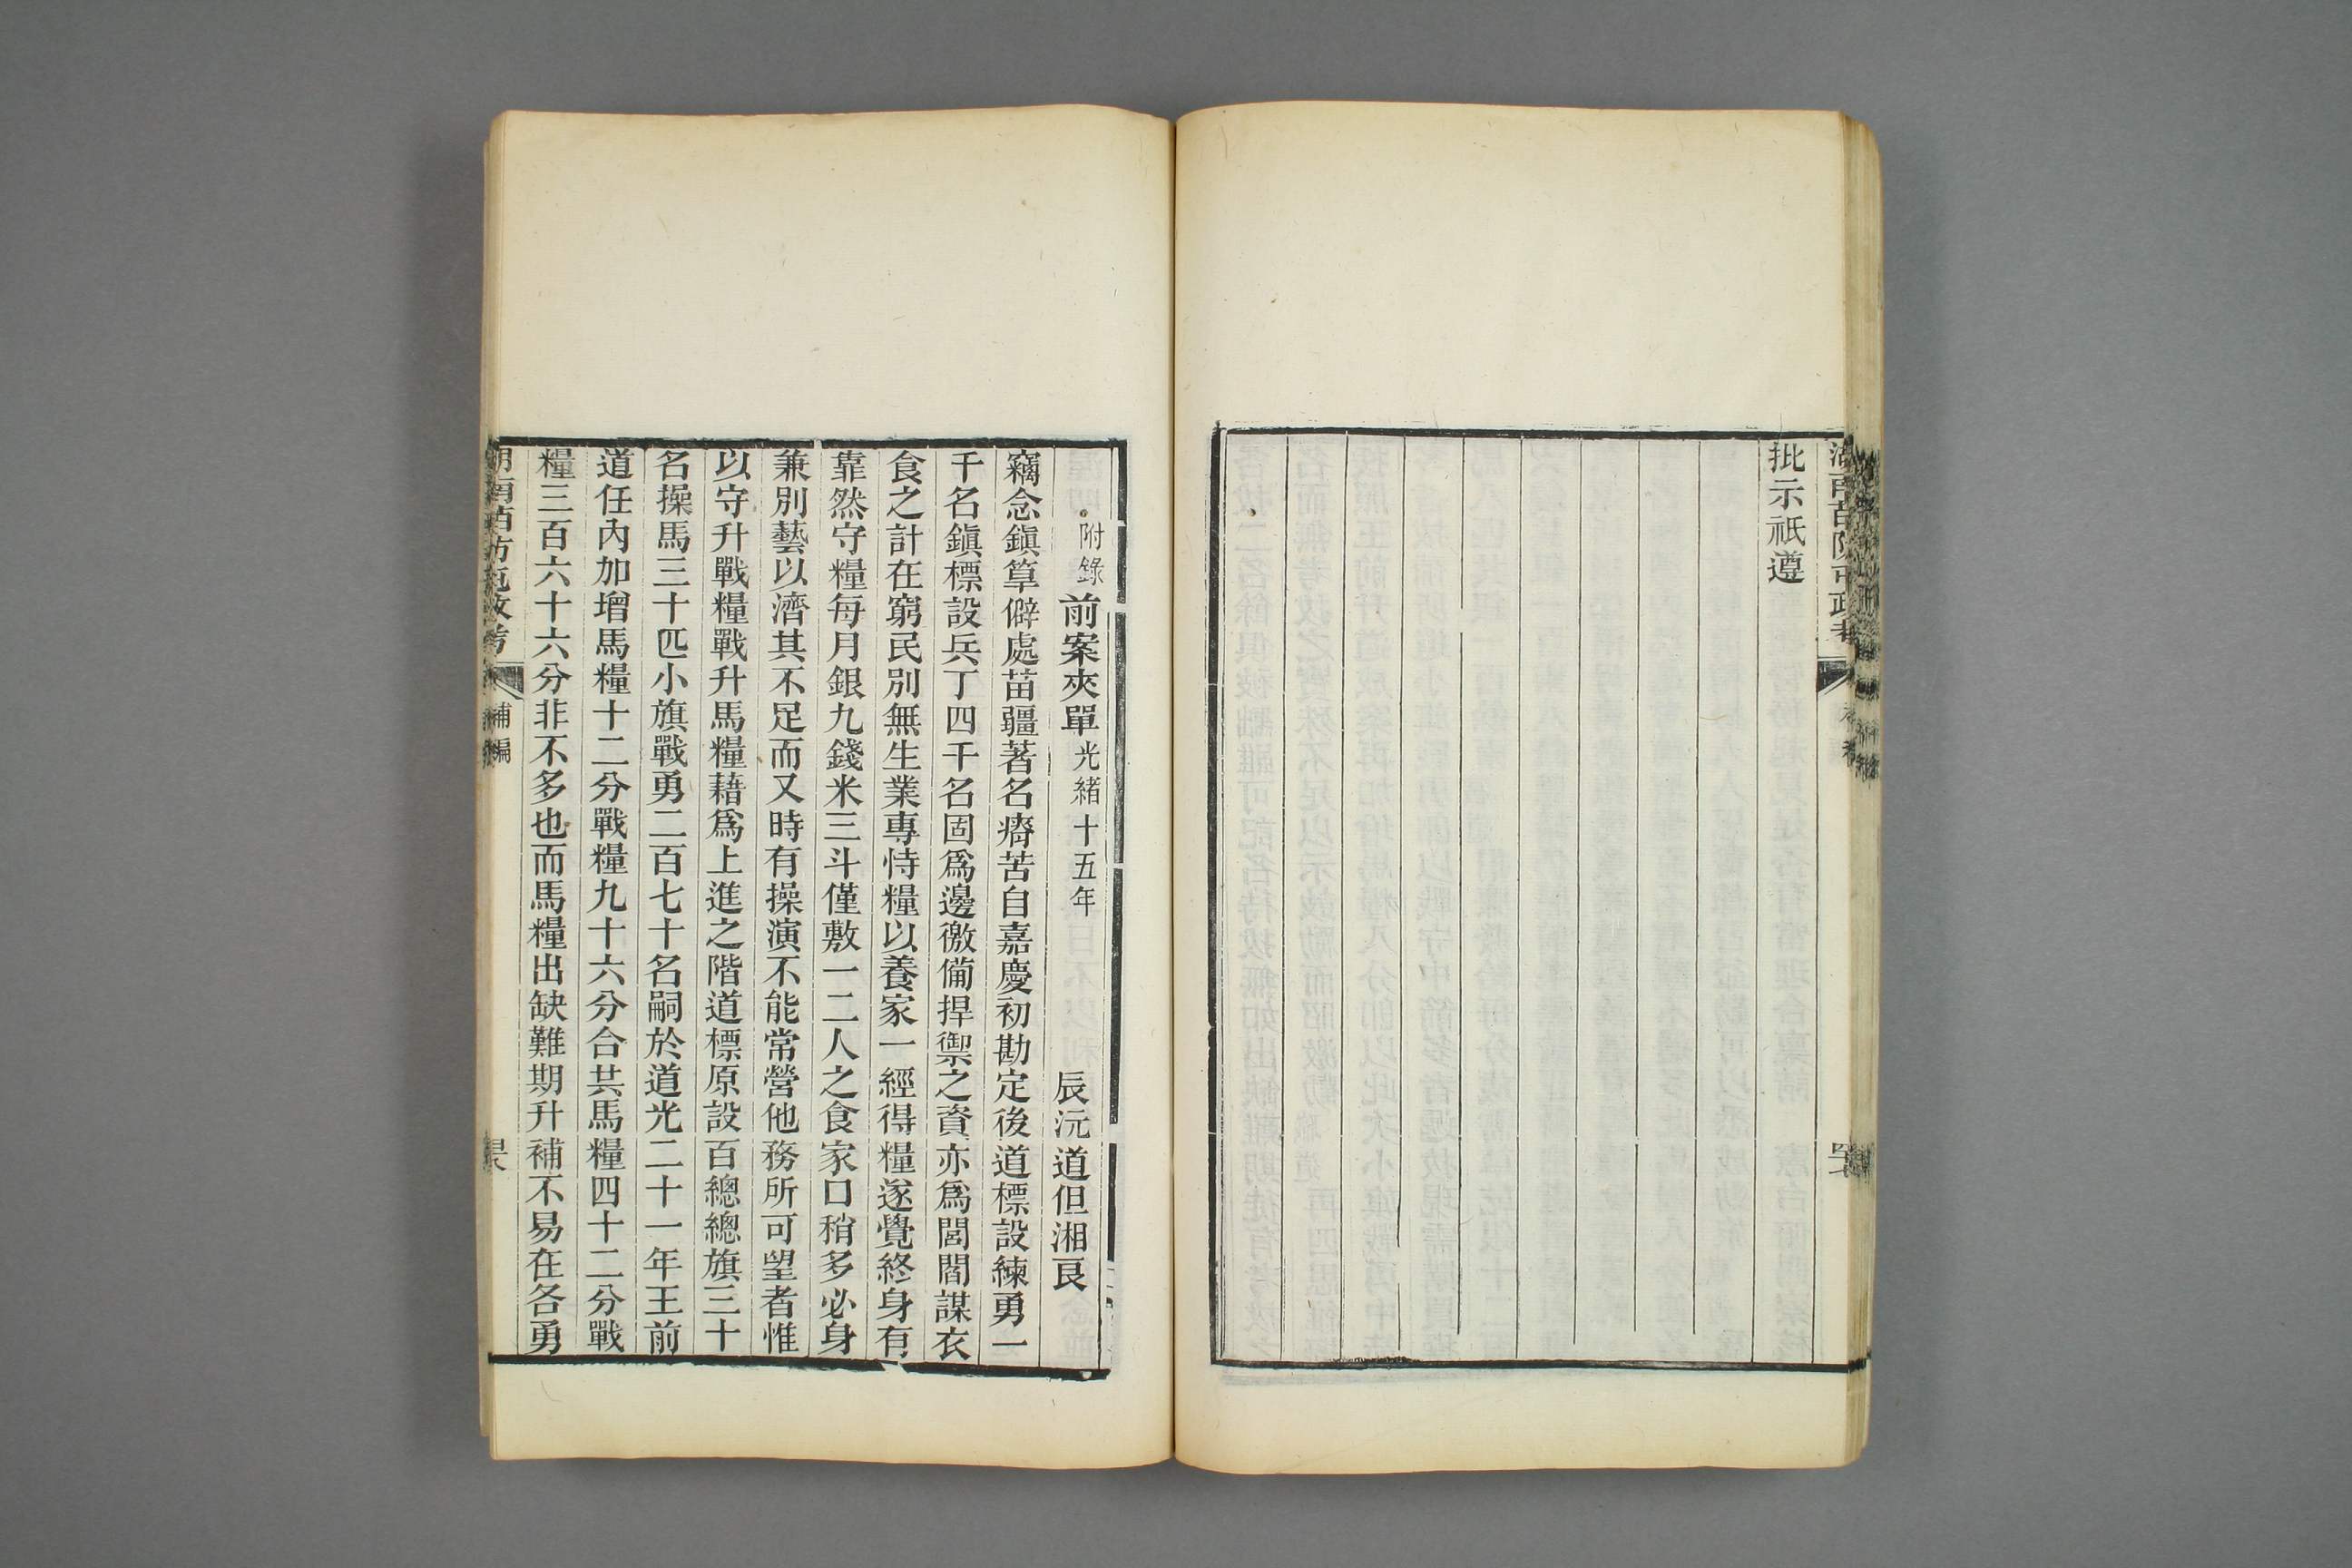 批示祇遵
附錄前案夾單光緒十五年 辰沅道但湘良
竊念鎮筸僻處苗疆著名瘠苦自嘉慶初勘定後道標設練勇一
千名鎮標設兵丁四千名固爲邊徼備捍禦之資亦爲閭閻謀衣
食之計在窮民別無生業專恃糧以養家一經得糧遂覺終身有
靠然守糧每月銀九錢米三斗僅敷一二人之食家口稍多必身
兼別藝以濟其不足而又時有操演不能常營他務所可望者惟
以守升戰糧戰升馬糧藉爲上進之階道標原設百總總旗三十
名操馬三十匹小旗戰勇二百七十名嗣於道光二十一年王前
道任內加增馬糧十二分戰糧九十六分合共馬糧四十二分戰
糧三百六十六分非不多也而馬糧出缺難期升補不易在各勇
補編